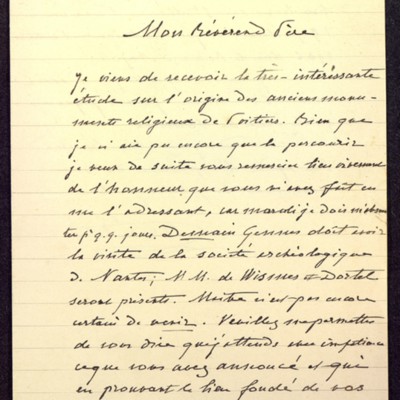 Mon Révérend Père
Je viens de recevoir la très-intéressante
étude sur l'origine des anciens monu-
ments religieux de Poitiers. Bien que
je n'aie pu encore que la parcourir
je veux de suite vous remercier bien vivement
de l'honneur que vous m'avez fait en
me l'adressant, car mardi je dois
p^r q.q. jours. Demain Gennes doit avoir
la visite de la société archéologique
de Nantes; M.M. de Wismes & Dortel
seront présents. Maître n'est pas encore
certain de venir. Veuillez me permettre
de vous dire que j'attends avec impatience
ce que vous avez annoncé et qui
en prouvant le bien fondé de vos